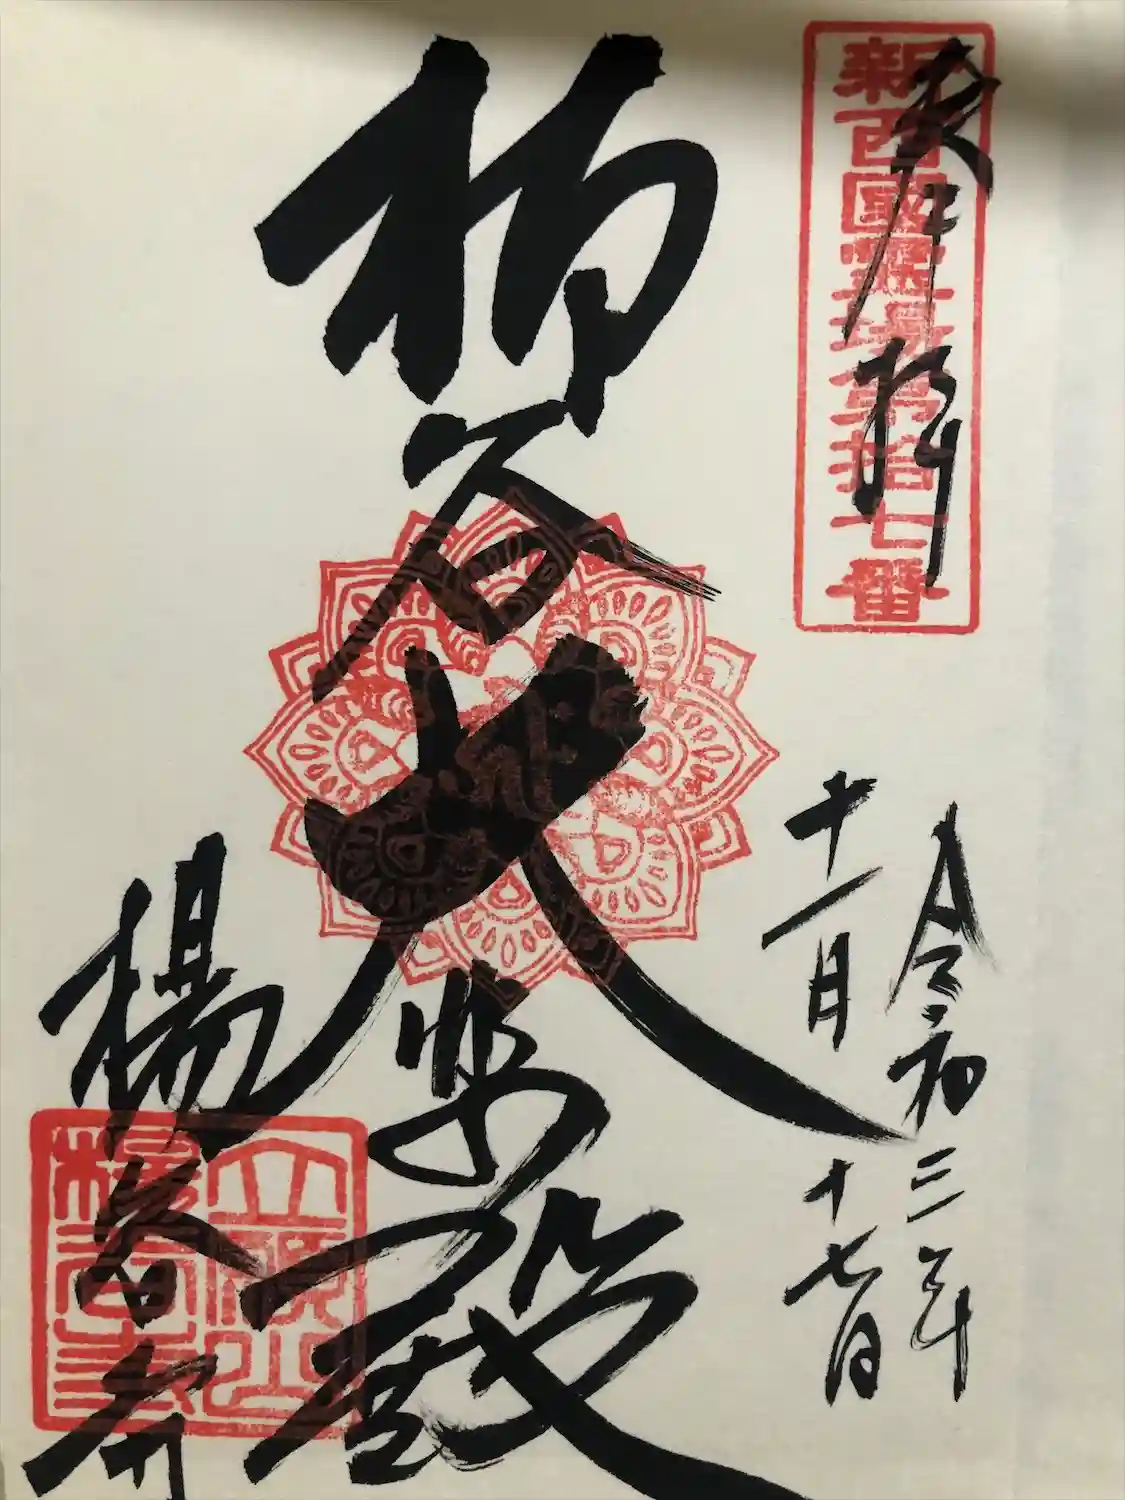 奉拝
新西國霊場第拾七番
令和三年
十一月十七日
柳谷大悲殿
楊谷寺
立願山
楊谷寺